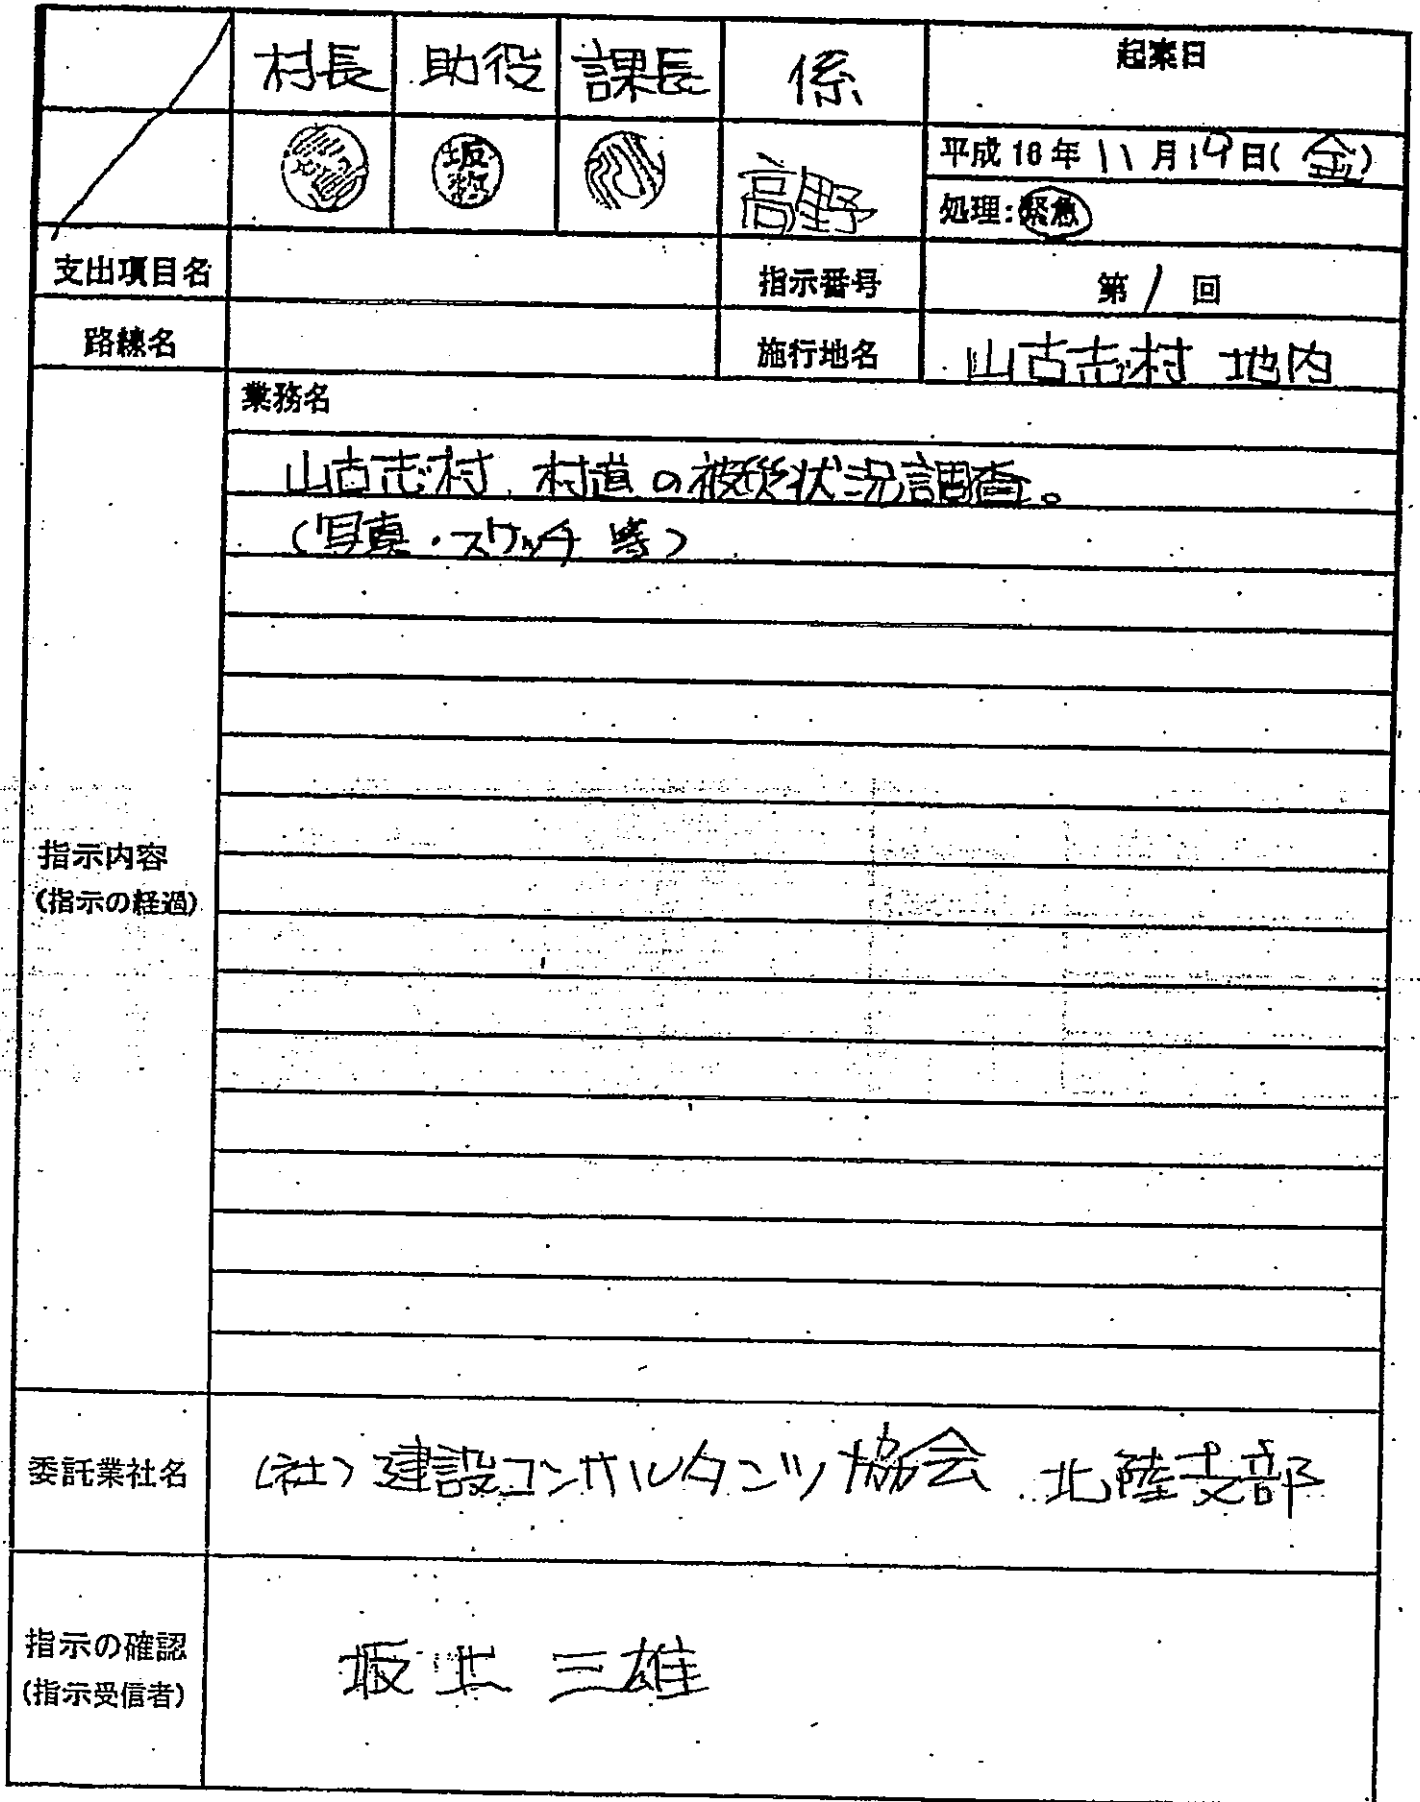 村長 助役 課長 係 起案日
高野 平成16年11月19日(金)
処理:緊急
支出項目名 指示番号 第1回
路線名 施行地名 山古志村 地内
業務名
山古志村、村道の被災状況調査。
(写真・スケッチ 等)
指示内容
(指示の経過)
委託業社名 (社)建設コンサルタンツ協会 北陸支部
指示の確認 三雄
(指示受信者)